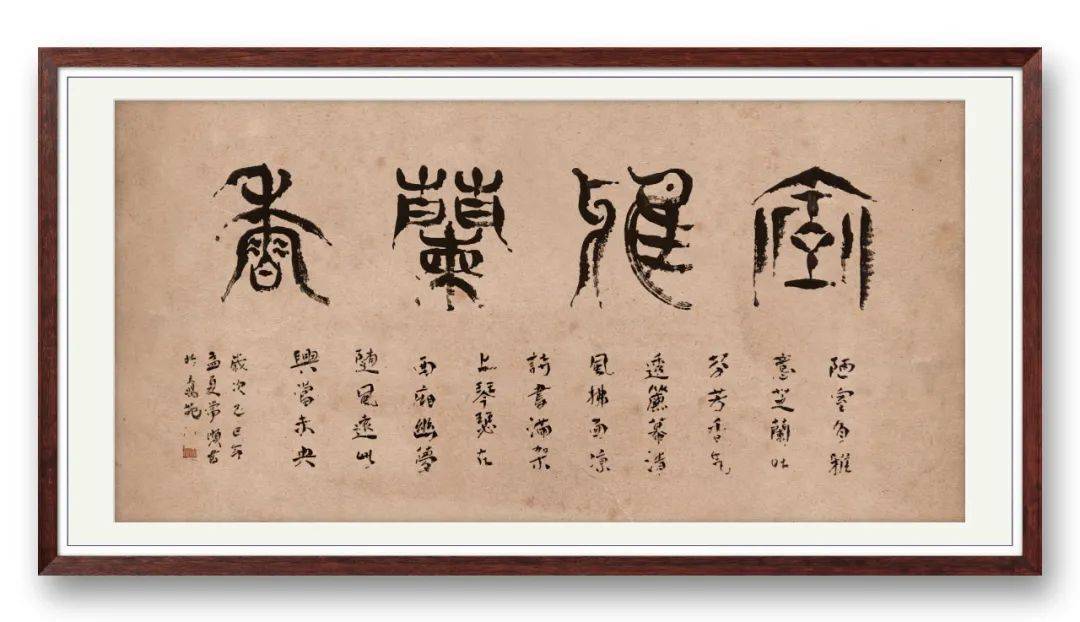 室雅蘭香
陋室多雅
意芝蘭吐
芬芳香氣
透簾幕清
風拂面凉
詩書滿架
上琴瑟在
西廂幽夢
隨風遠此
興當未央
歲次乙巳年
孟夏常順書
於苑